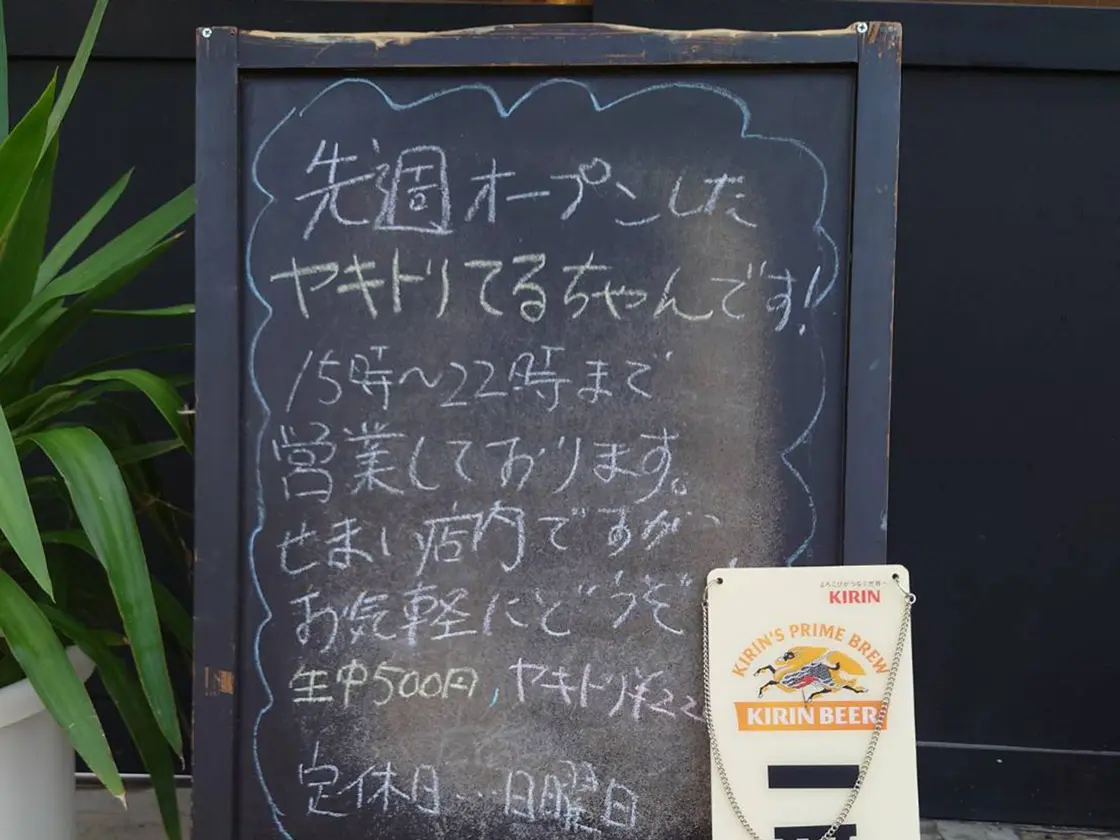 先週オープンした
ヤキトリてるちゃんです!
15時〜22時まで
営業しております。
せまい店内ですが、
お気軽にどうぞ
生中500円,ヤキトリ
定休日…日曜日
よろこびがつなぐ世界へ
KIRIN
KIRIN'S PRIME BREW
KIRIN BEER